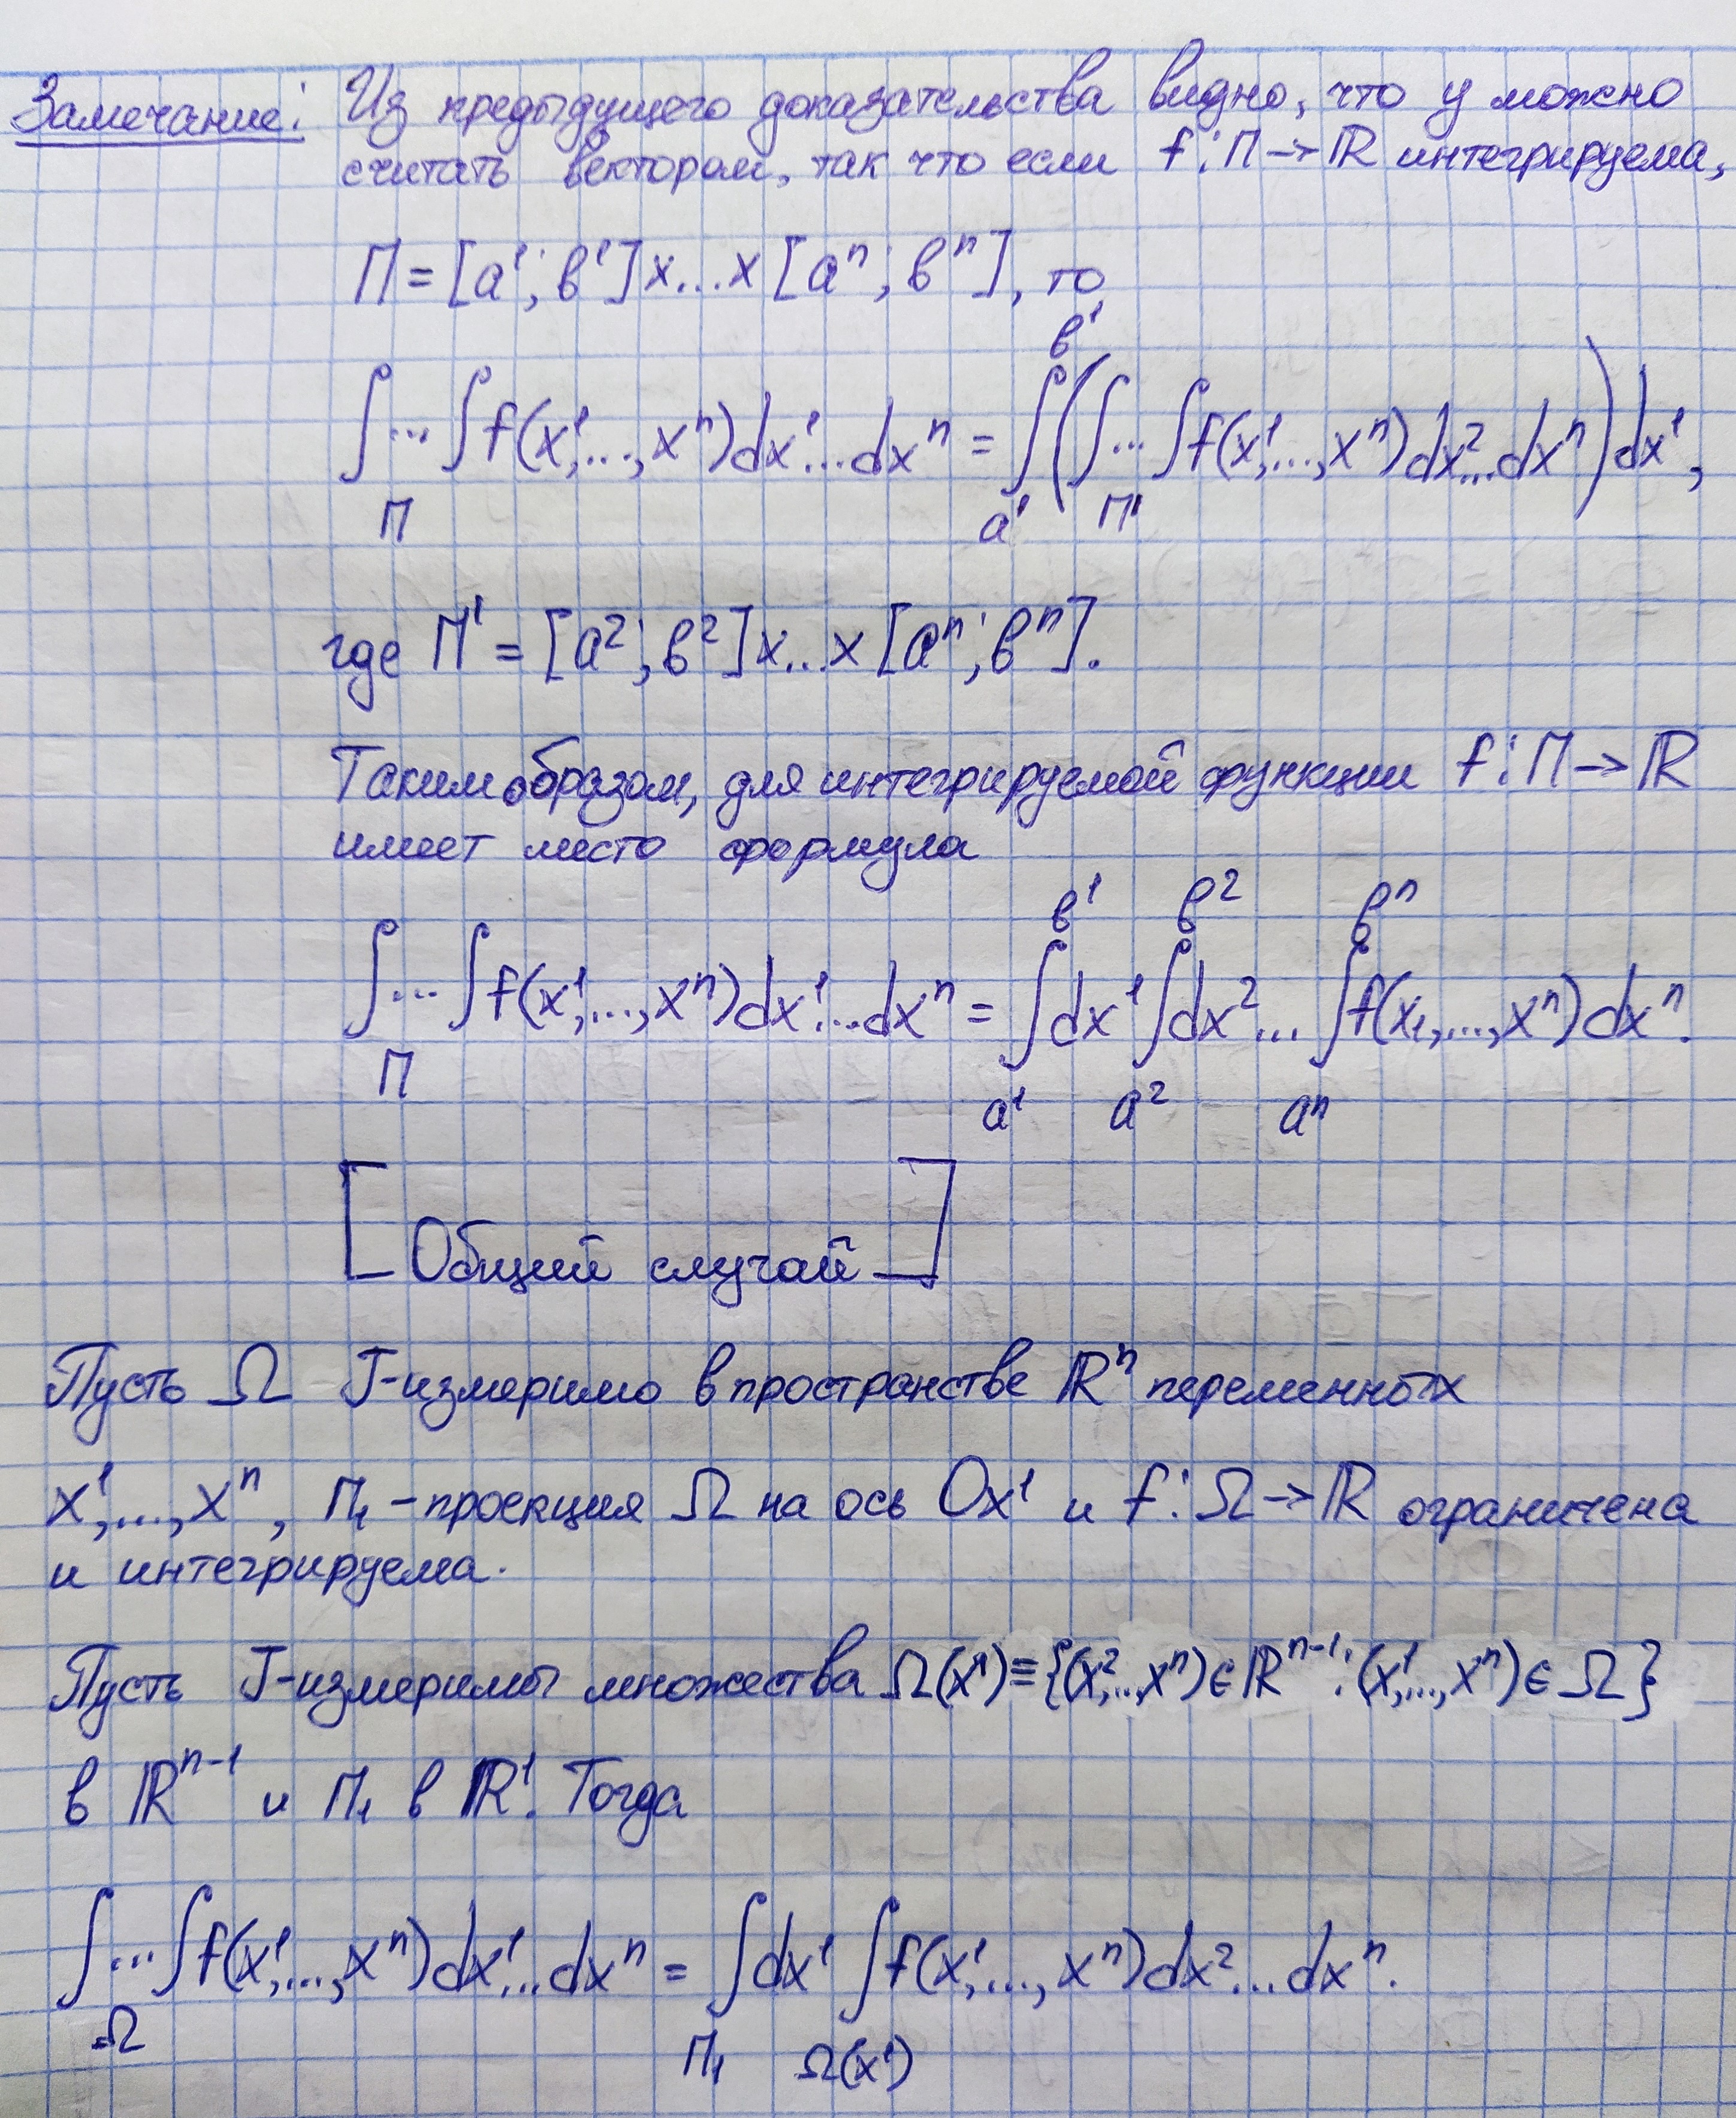 Замечание: Из предыдущего доказательства видно, что y можно
считать вектором, так что если f: П → ℝ интегрируема,
П = [a¹; b¹] × ... × [aⁿ; bⁿ], то
∫...∫_П f(x¹,...,xⁿ)dx¹...dxⁿ = ∫_{a¹}^{b¹} (∫...∫_{П'} f(x¹,...,xⁿ)dx²...dxⁿ) dx¹,
где П' = [a²; b²] × ... × [aⁿ; bⁿ].
Таким образом, для интегрируемой функции f: П → ℝ
имеет место формула
∫...∫_П f(x¹,...,xⁿ)dx¹...dxⁿ = ∫_{a¹}^{b¹} dx¹ ∫_{a²}^{b²} dx² ... ∫_{aⁿ}^{bⁿ} f(x₁,...,xⁿ)dxⁿ.
[Общий случай]
Пусть Ω J-измеримо в пространстве ℝⁿ переменных
x¹,...,xⁿ, П₁ - проекция Ω на ось Ox¹ и f: Ω → ℝ ограничена
и интегрируема.
Пусть J-измеримы множества Ω(x¹) ≡ {(x²,..,xⁿ) ∈ ℝⁿ⁻¹: (x¹,..., xⁿ) ∈ Ω}
в ℝⁿ⁻¹ и П₁ в ℝ¹. Тогда
∫...∫_Ω f(x¹,...,xⁿ)dx¹...dxⁿ = ∫_{П₁} dx¹ ∫_{Ω(x¹)} f(x¹,...,xⁿ)dx²...dxⁿ.